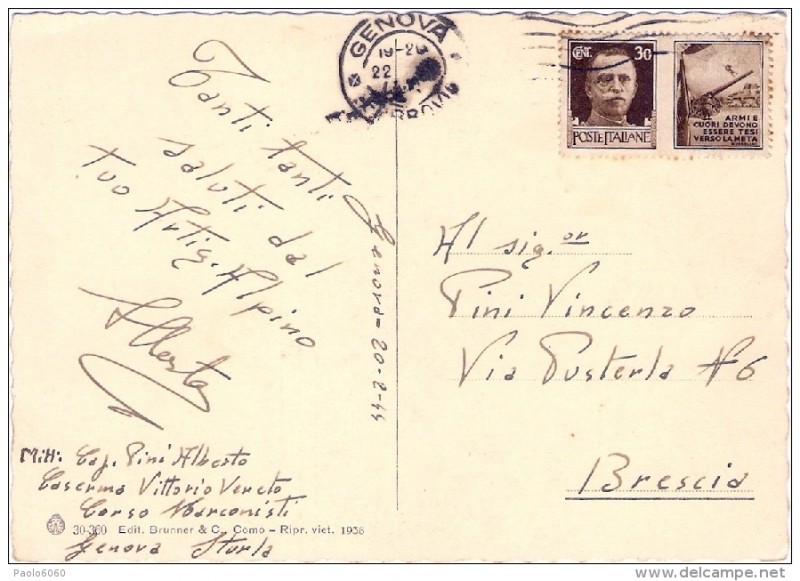 GENOVA
19-20
22
CENT. 30
POSTE ITALIANE
ARMI E
CUORI DEVONO
ESSERE TESI
VERSO LA META
Tanti tanti
saluti dal
tuo Artig. Alpino
Alberto
Genova = 20-2-44
Al sig.or
Pini Vincenzo
Via Pusterla N 6
Brescia
Mitt: Cap. Pini Alberto
Caserma Vittorio Veneto
Corso Marconisti
30-360 Edit. Brunner & C., Como - Ripr. viet. 1938
Genova Sturla
Paolo6060
delcampe.net